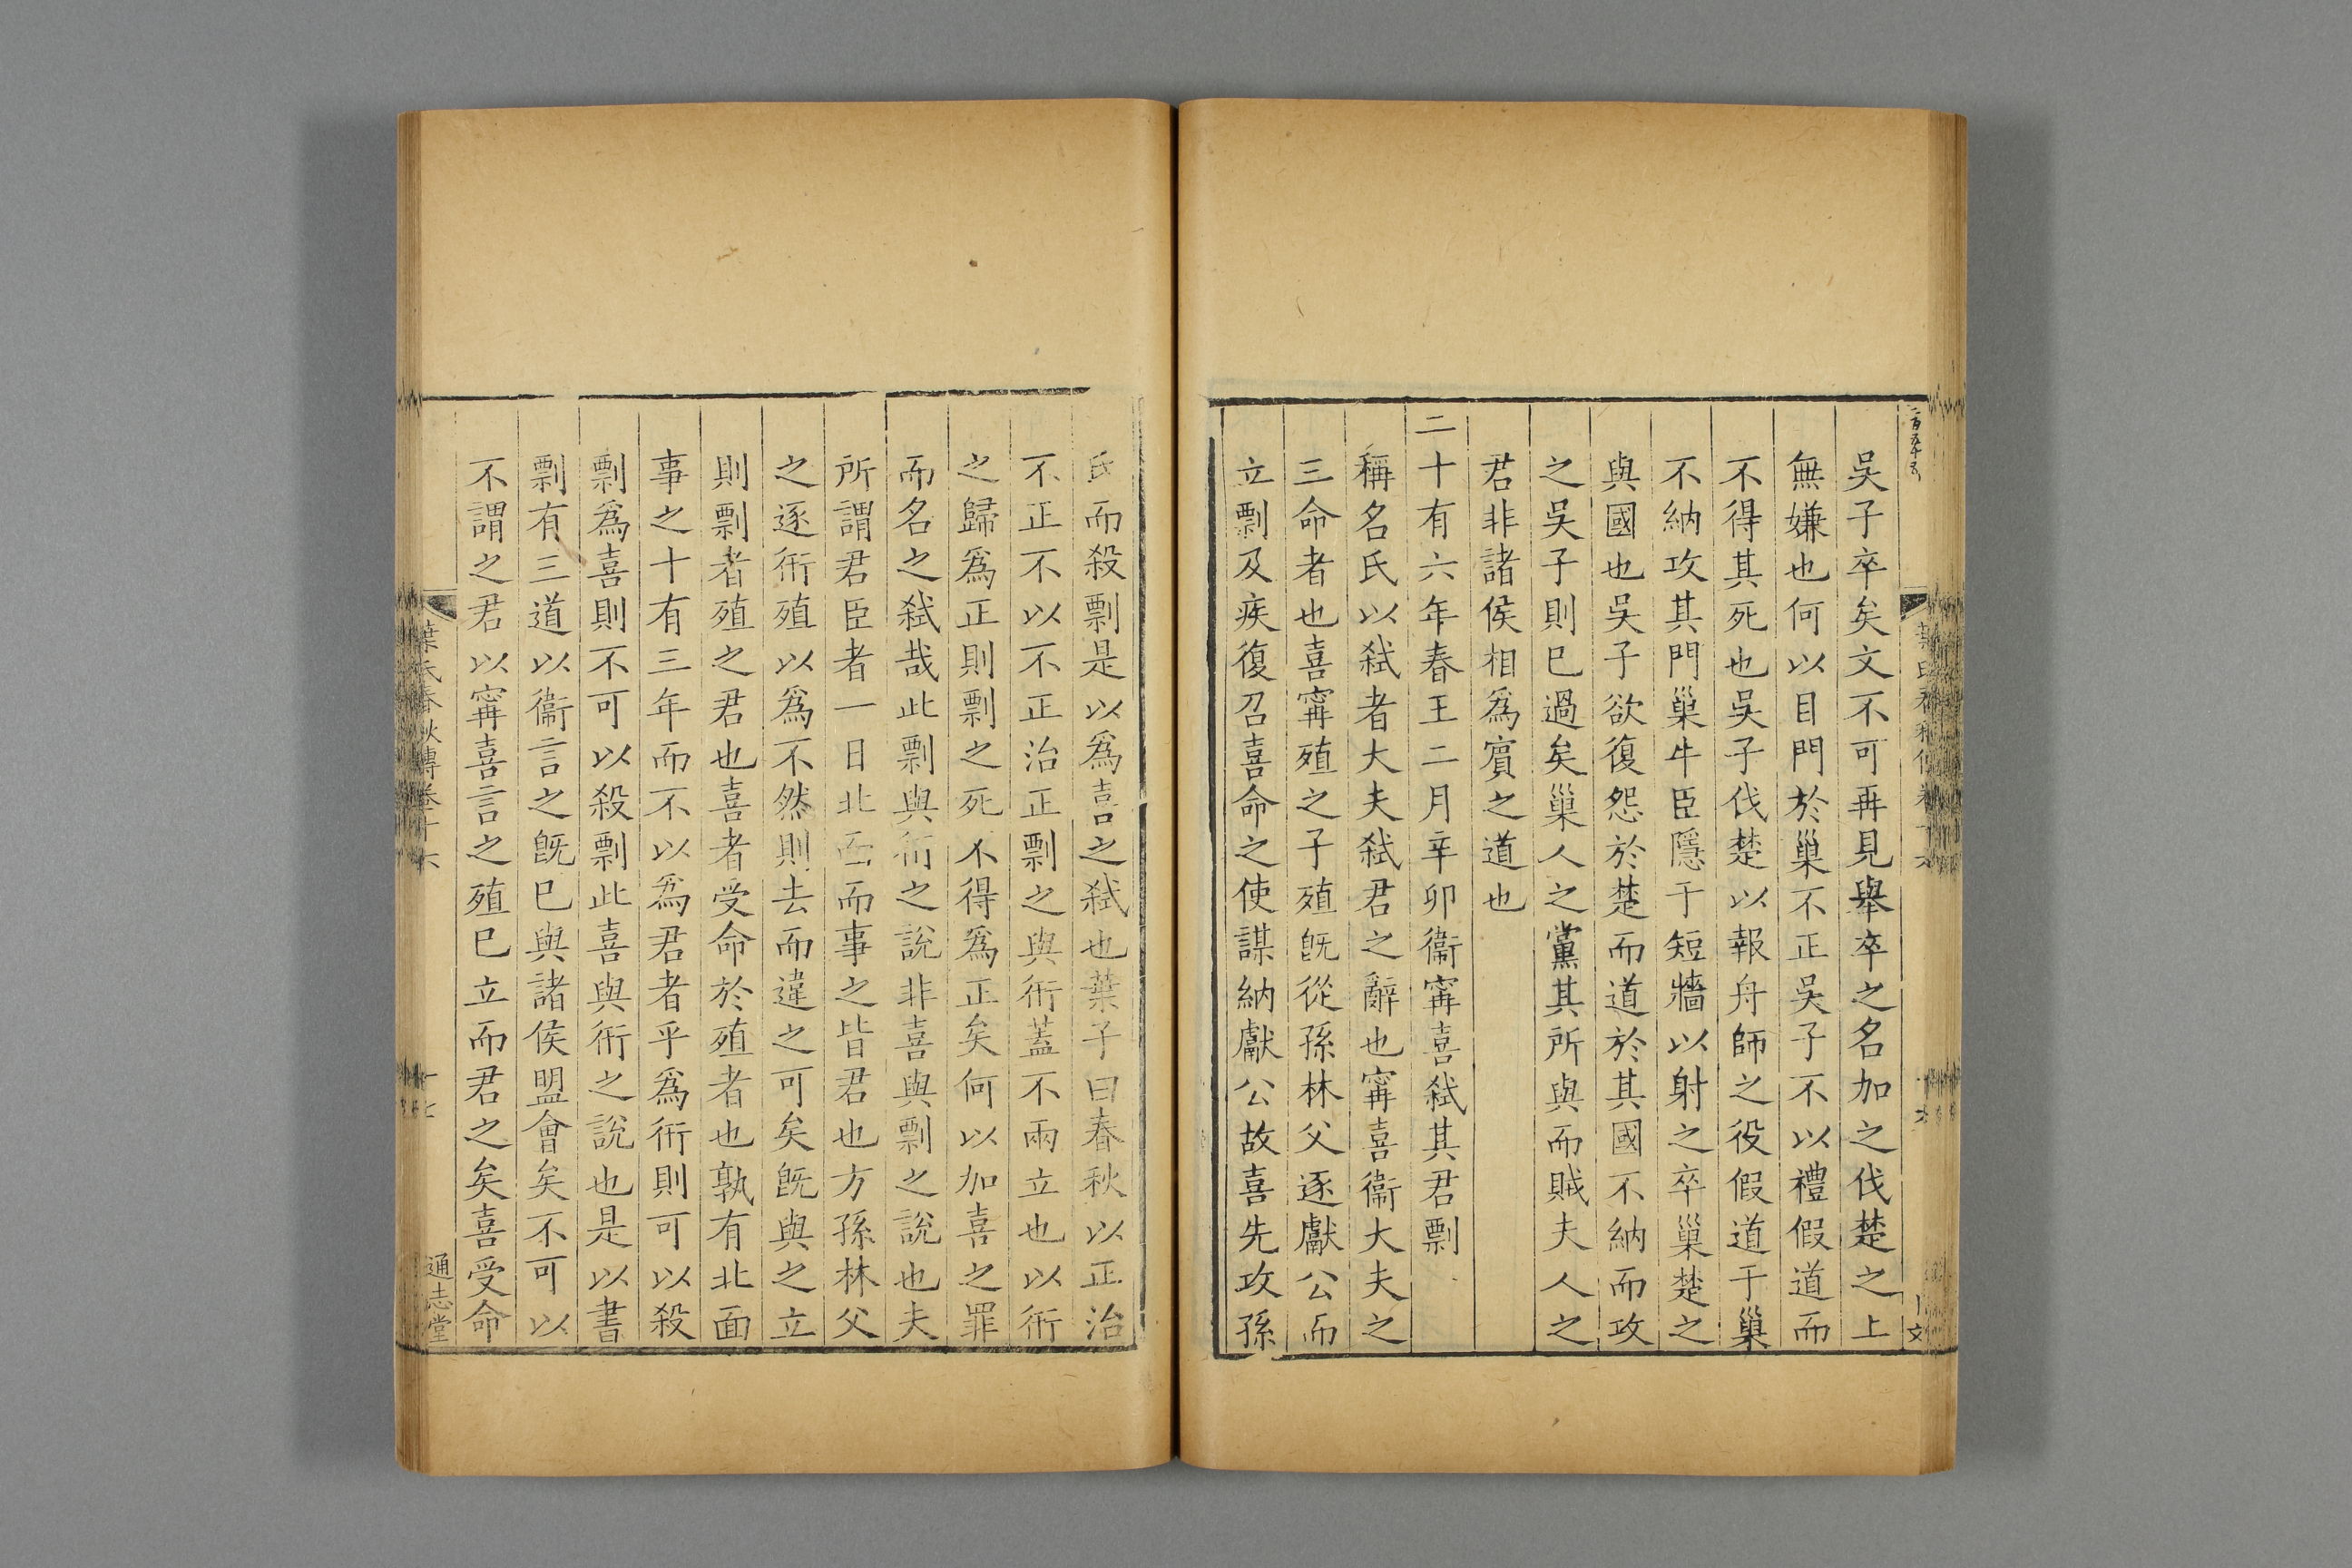 吳子卒矣文不可再見舉卒之名加之伐楚之上
無嫌也何以目門於巢不正吳子不以禮假道而
不得其死也吳子伐楚以報舟師之役假道于巢
不納攻其門巢牛臣隱于短牆以射之卒巢楚之
與國也吳子欲復怨於楚而道於其國不納而攻
之吳子則已過矣巢人之黨其所與而賊夫人之
君非諸侯相爲賓之道也
二十有六年春王二月辛卯衞甯喜弑其君剽
稱名氏以弑者大夫弑君之辭也甯喜衞大夫之
三命者也喜甯殖之子殖旣從孫林父逐獻公而
立剽及疾復召喜命之使謀納獻公故喜先攻孫
氏而殺剽是以爲喜之弑也葉子曰春秋以正治
不正不以不正治正剽之與衎蓋不兩立也以衎
之歸爲正則剽之死不得爲正矣何以加喜之罪
而名之弑哉此剽與衎之說非喜與剽之說也夫
所謂君臣者一日北面而事之皆君也方孫林父
之逐衎殖以爲不然則去而違之可矣旣與之立
則剽者殖之君也喜者受命於殖者也孰有北面
事之十有三年而不以爲君者乎爲衎則可以殺
剽爲喜則不可以殺剽此喜與衎之說也是以書
剽有三道以衞言之旣已與諸侯盟會矣不可以
不謂之君以甯喜言之殖已立而君之矣喜受命
葉氏春秋傳卷十六
十七
通志堂